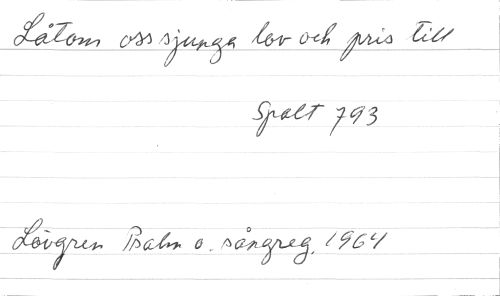 Låtom oss sjunga lov och pris till
Spalt 793
Lövgren Psalm o. sångreg. 1964